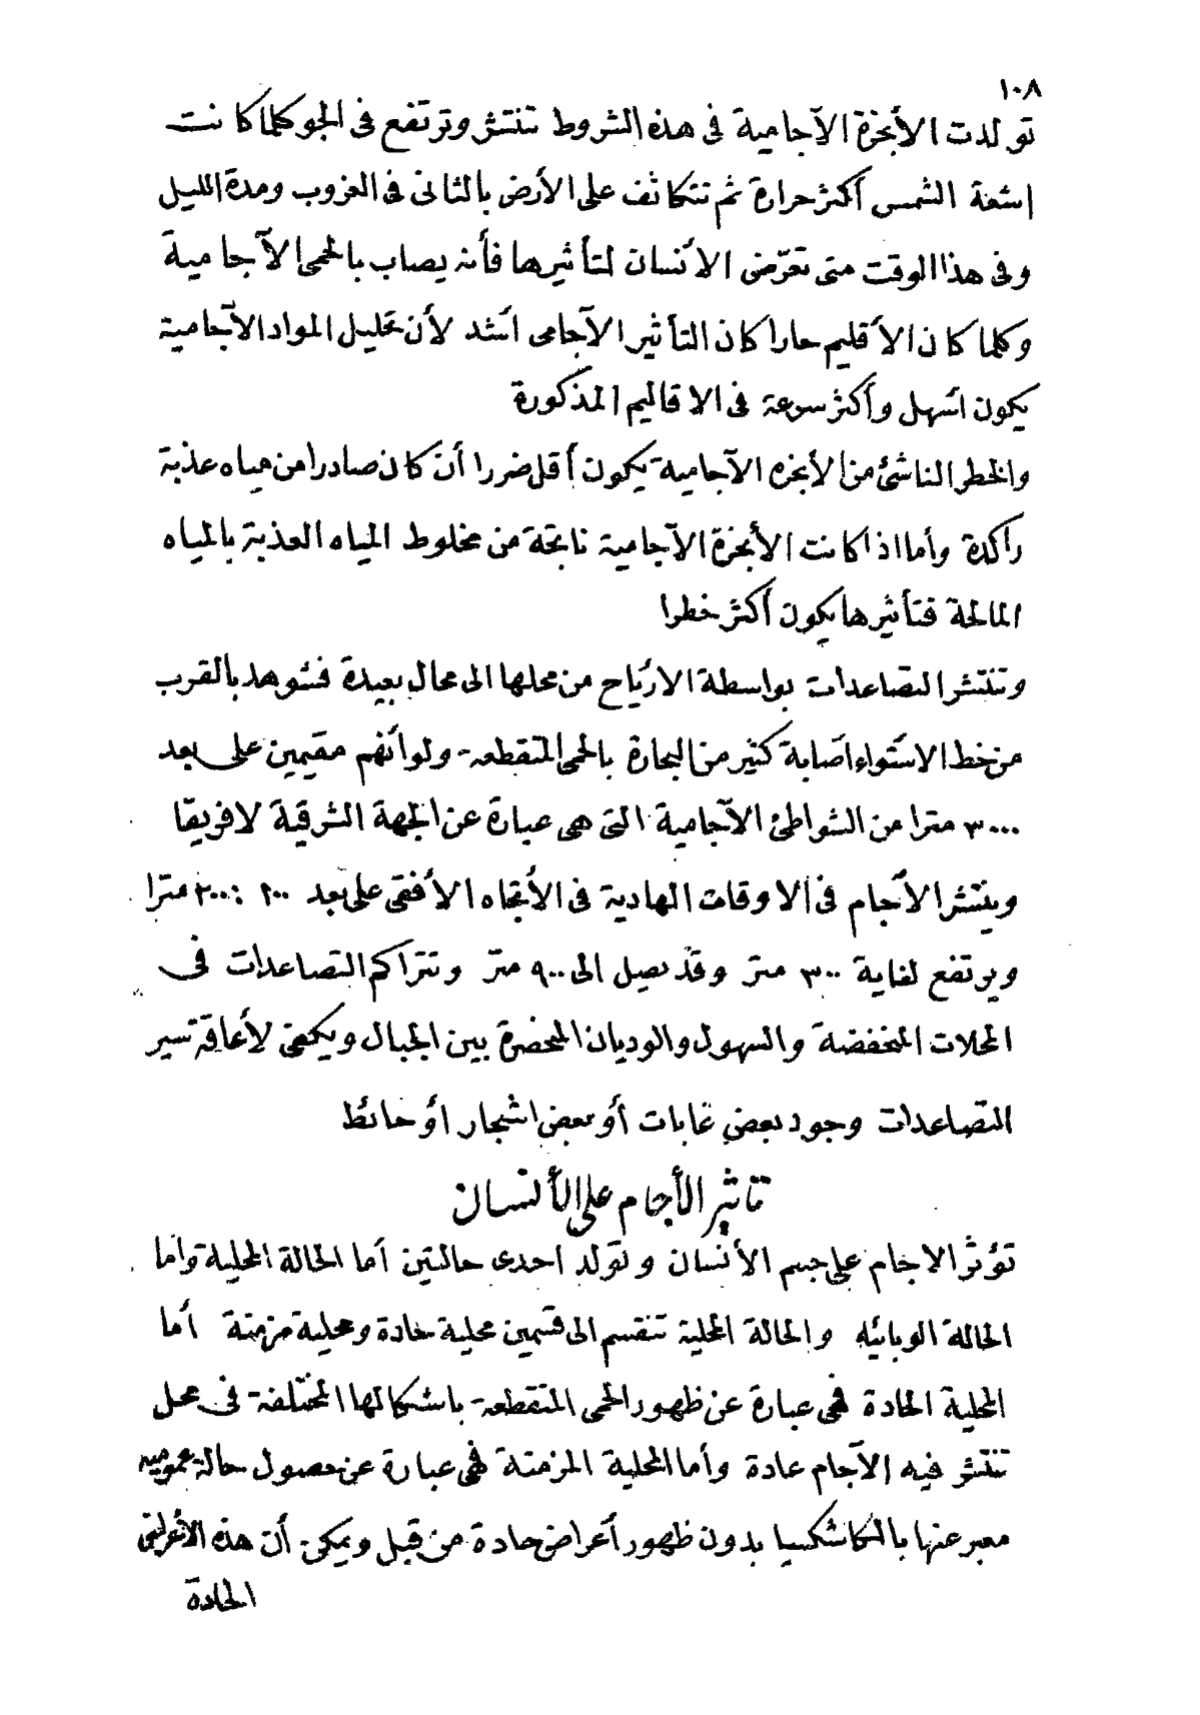 ١٠٨
تولدت الأبخرة الآجامية فى هذه الشروط تنتشر وترتفع فى الجو كلما كانت
اشعة الشمس أكثر حرارة ثم تتكاثف على الأرض بالثانى فى الغروب ومدة الليل
وفى هذا الوقت متى تعرّض الأنسان لتأثيرها فأنه يصاب بالحمى الآجامية
وكلما كان الأقليم حارا كان التأثير الآجامى أشد لأن تحليل المواد الآجامية
يكون اسهل وأكثر سرعة فى الاقاليم المذكورة
والخطر الناشئ من الأبخره الآجامية يكون أقل ضررا أن كان صادرا من مياه عذبة
راكدة وأما اذا كانت الأبخرة الآجامية ناتجة من مخلوط المياه العذبة بالمياه
المالحة فتأثيرها يكون أكثر خطرا
وتنتشر التصاعدات بواسطة الارياح من محلها الى محال بعيدة فشوهد بالقرب
من خط الاستواء اصابة كثير من البحارة بالحمى المتقطعة ولو أنهم مقيمين على بعد
٣٠٠٠ مترا من الشواطئ الآجامية التى هى عبارة عن الجهة الشرقية لافريقا
وينتشر الآجام فى الاوقات الهادية فى الأتجاه الأفقى على بعد ٢٠٠ : ٣٠٠ مترا
ويرتفع لغاية ٣٠٠ متر وقد يصل الى ٩٠٠ متر وتتراكم التصاعدات فى
المحلات المنخفضة والسهول والوديان المنحصرة بين الجبال ويكفى لأعاقة سير
التصاعدات وجود بعض غابات أو بعض اشجار أو حائط
تاثير الأجام على الأنسان
تؤثر الاجام على جسم الأنسان وتولد احدى حالتين أما الحالة المحلية واما
الحالة الوبائيه والحالة المحلية تنقسم الى قسمين محلية حادة ومحلية مزمنة أما
المحلية الحادة فهى عبارة عن ظهور الحمى المتقطعة باشكالها المختلفة فى محل
تنتشر فيه الآجام عادة وأما المحلية المزمنة فهى عبارة عن حصول حالة عموميه
معبر عنها بالكاشكسيا بدون ظهور أعراض حادة من قبل ويمكن أن هذه الأعراض
الحادة